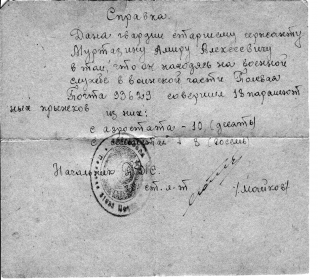 Справка
Дана гвардии старшему сержанту
Муртазину Амиру Алексеевичу
в том, что он находясь на военной
службе в воинской части Полевая
Почта 93629 совершил 18 парашют
ных прыжков
из них:
с аэростата - 10 (десять)
с 8 (восемь)
Начальник ПДС
ст. л-т /Майков/